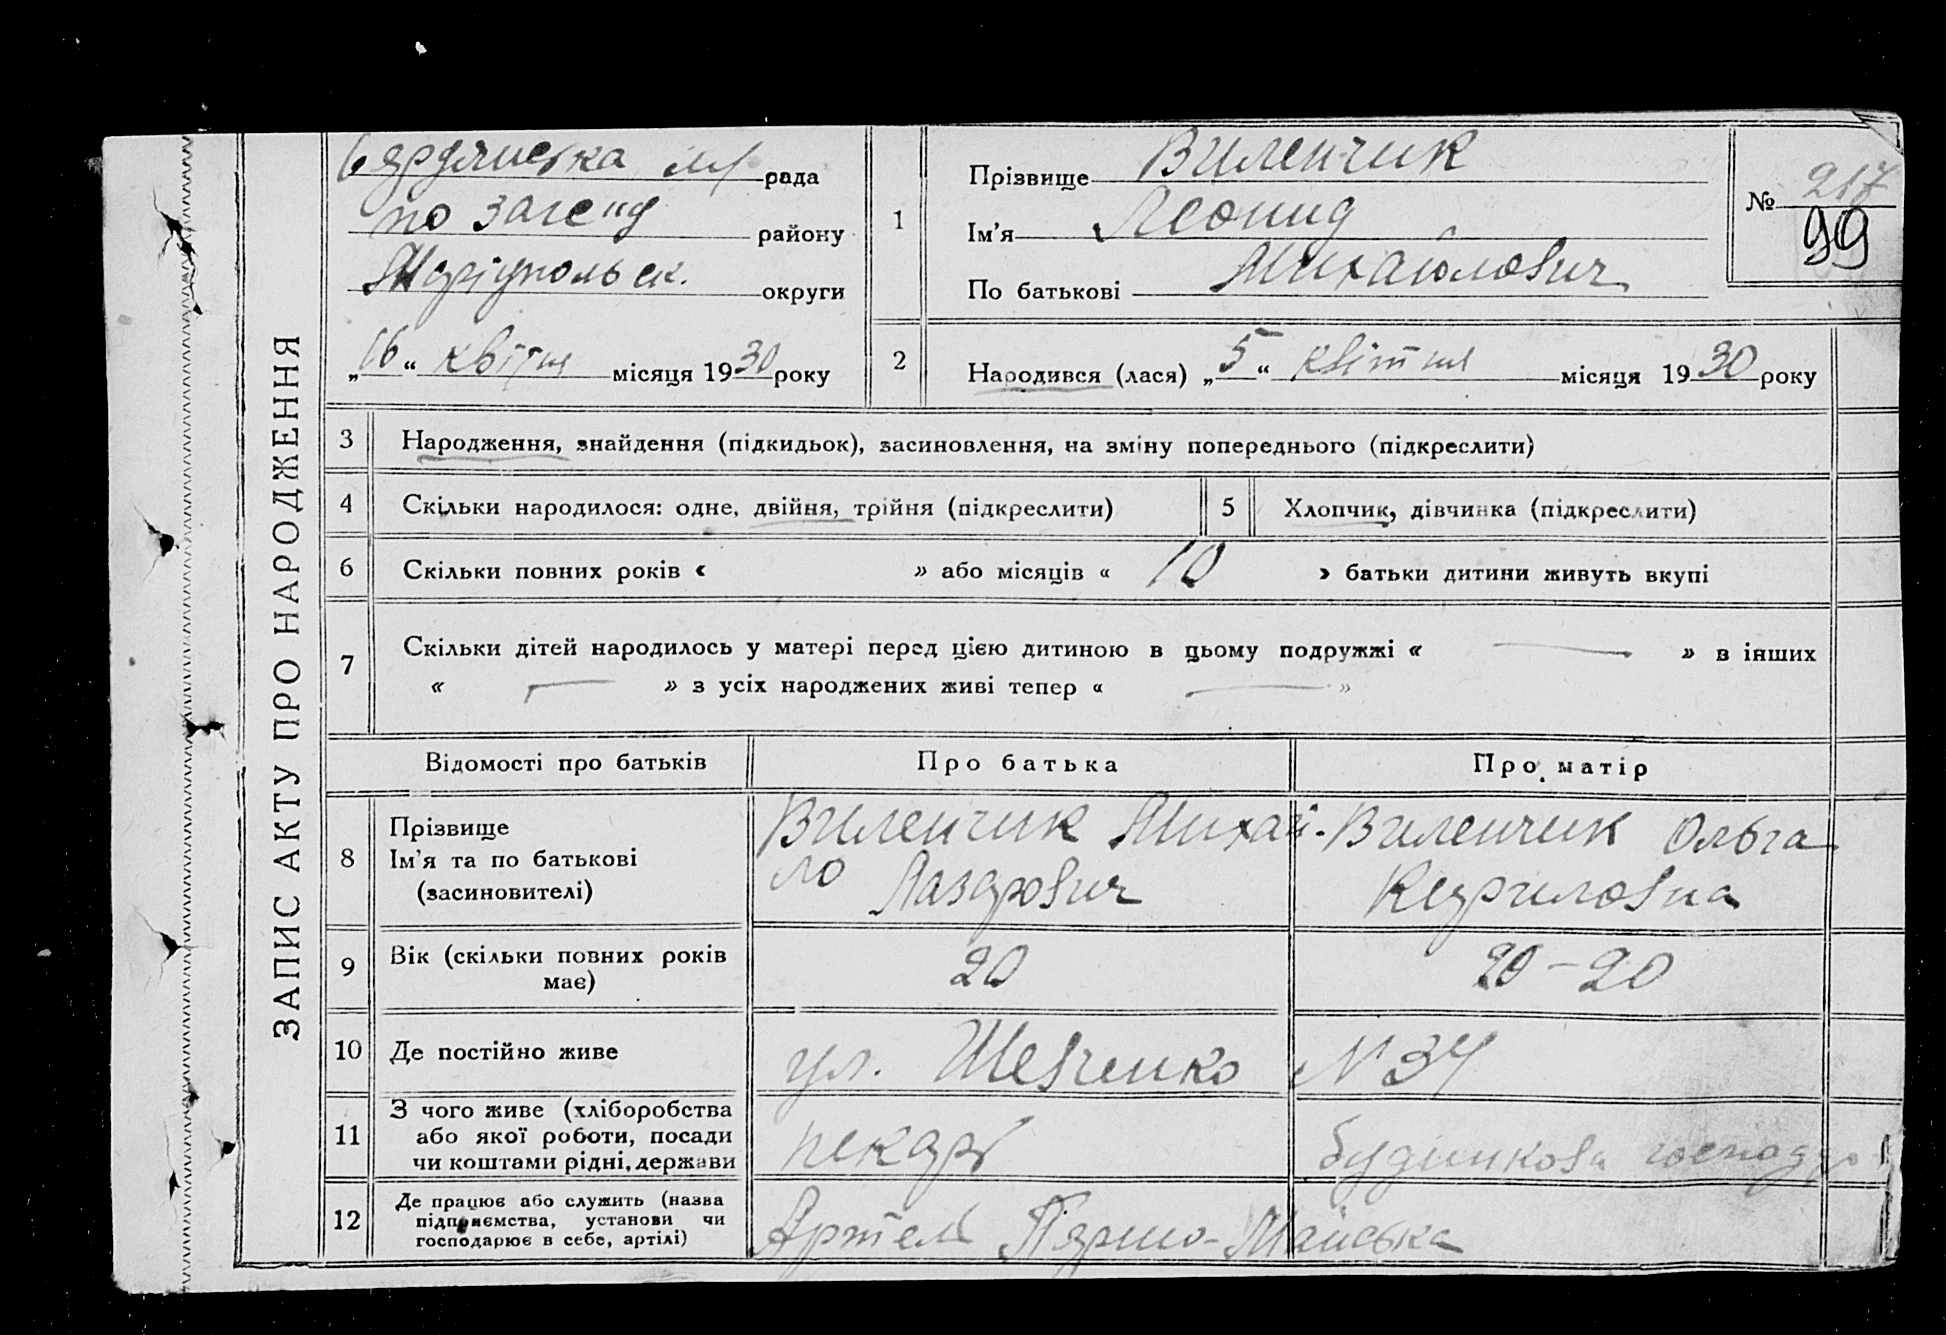 ЗАПИС АКТУ ПРО НАРОДЖЕННЯ
рада
району
Маріупольськ. округи
„16“ квітня місяця 1930 року
1
Прізвище Виленчик
Ім’я Леонид
По батькові Михайлович
№ 217
99
2
Народився (лася) „5“ квітня місяця 1930 року
3 Народження, знайдення (підкидьок), засиновлення, на зміну попереднього (підкреслити)
4 Скільки народилося: одне, двійня, трійня (підкреслити) 5 Хлопчик, дівчинка (підкреслити)
6 Скільки повних років « » або місяців « 10 » батьки дитини живуть вкупі
7 Скільки дітей народилось у матері перед цією дитиною в цьому подружжі « — » в інших
« — » з усіх народжених живі тепер « — »
Відомості про батьків Про батька Про матір
8 Прізвище
Ім’я та по батькові
(засиновителі)
Виленчик Михай-
ло Лазарович
Виленчик Ольга
Кириловна
9 Вік (скільки повних років
має)
20
20-20
10 Де постійно живе ул. Шевченко N 34
11 З чого живе (хліборобства
або якої роботи, посади
чи коштами рідні, держави
пекарь
будинкова
12 Де працює або служить (назва
підприємства, установи чи
господарює в себе, артілі)
Артель Пяршо-Майська